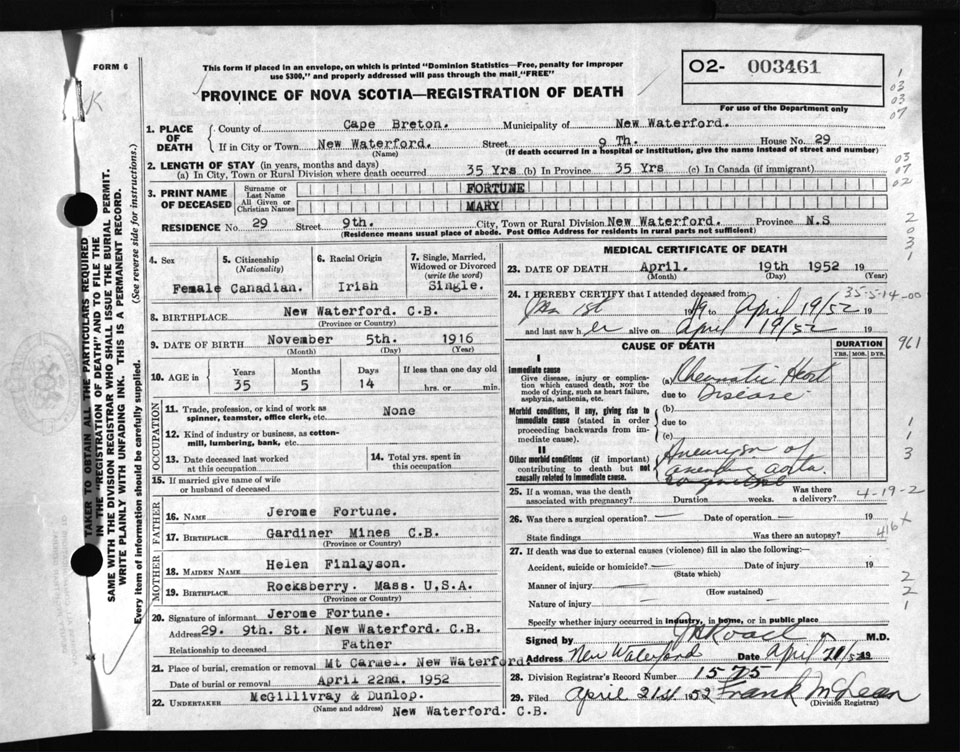 FORM 6
This form if placed in an envelope, on which is printed "Dominion Statistics—Free, penalty for improper
use $300," and properly addressed will pass through the mail "FREE"
PROVINCE OF NOVA SCOTIA—REGISTRATION OF DEATH
O2- 003461
For use of the Department only
1. PLACE OF DEATH
County of Cape Breton. Municipality of New Waterford.
If in City or Town New Waterford. Street 9 Th. House No. 29
(Name) (If death occurred in a hospital or institution, give the name instead of street and number)
2. LENGTH OF STAY (in years, months and days)
(a) In City, Town or Rural Division where death occurred 35 Yrs (b) In Province 35 Yrs (c) In Canada (if immigrant)
3. PRINT NAME OF DECEASED
Surname or Last Name FORTUNE
All Given or Christian Names MARY
RESIDENCE No. 29 Street 9th. City, Town or Rural Division New Waterford. Province N.S
(Residence means usual place of abode. Post Office Address for residents in rural parts not sufficient)
4. Sex Female
5. Citizenship (Nationality) Canadian.
6. Racial Origin Irish
7. Single, Married, Widowed or Divorced (write the word) Single.
8. BIRTHPLACE New Waterford. C.B.
(Province or Country)
9. DATE OF BIRTH November 5th. 1916
(Month) (Day) (Year)
10. AGE in Years 35 Months 5 Days 14 If less than one day old hrs. or min.
OCCUPATION
11. Trade, profession, or kind of work as spinner, teamster, office clerk, etc. None
12. Kind of industry or business, as cotton-mill, lumbering, bank, etc.
13. Date deceased last worked at this occupation
14. Total yrs. spent in this occupation
15. If married give name of wife or husband of deceased
FATHER
16. NAME Jerome Fortune.
17. BIRTHPLACE Gardiner Mines C.B.
(Province or Country)
MOTHER
18. MAIDEN NAME Helen Finlayson.
19. BIRTHPLACE Rocksberry. Mass. U.S.A.
(Province or Country)
20. Signature of informant Jerome Fortune.
Address 29. 9th. St. New Waterford. C.B.
Relationship to deceased Father
21. Place of burial, cremation or removal Mt Carmel. New Waterford.
Date of burial or removal April 22nd. 1952
22. UNDERTAKER McGillivray & Dunlop.
(Name and address) New Waterford. C.B.
MEDICAL CERTIFICATE OF DEATH
23. DATE OF DEATH April. 19th 1952 19
(Month) (Day) (Year)
35-5-14-00
24. I HEREBY CERTIFY that I attended deceased from:
to April 19/52 19
and last saw h er alive on April 19/52 19
CAUSE OF DEATH
DURATION
YRS. MOS. DYS.
I
Immediate cause
Give disease, injury or complication which caused death, not the mode of dying, such as heart failure, asphyxia, asthenia, etc.
(a) Rheumatic Heart
due to Disease
Morbid conditions, if any, giving rise to immediate cause (stated in order proceeding backwards from immediate cause).
(b)
due to
(c)
II
Other morbid conditions (if important) contributing to death but not causally related to immediate cause.
Aneurysm of
ascending aorta
25. If a woman, was the death associated with pregnancy? Duration weeks. Was there a delivery?
4-19-2
26. Was there a surgical operation? Date of operation 19
State findings Was there an autopsy?
416 X
27. If death was due to external causes (violence) fill in also the following:—
Accident, suicide or homicide? Date of injury 19
(State which)
Manner of injury
(How sustained)
Nature of injury
Specify whether injury occurred in industry, in home, or in public place
Signed by M.D.
Address New Waterford Date April 21/52 19
28. Division Registrar's Record Number 1575
29. Filed April 21st 1952 Frank McLean
(Division Registrar)
TAKEN TO OBTAIN ALL THE PARTICULARS REQUIRED
IN THE "REGISTRATION OF DEATH" AND TO FILE THE
SAME WITH THE DIVISION REGISTRAR WHO SHALL ISSUE THE BURIAL PERMIT.
WRITE PLAINLY WITH UNFADING INK. THIS IS A PERMANENT RECORD.
Every item of information should be carefully supplied. (See reverse side for instructions.)
K
1
03
03
07
03
07
02
2
0
3
1
961
1
1
3
2
2
1